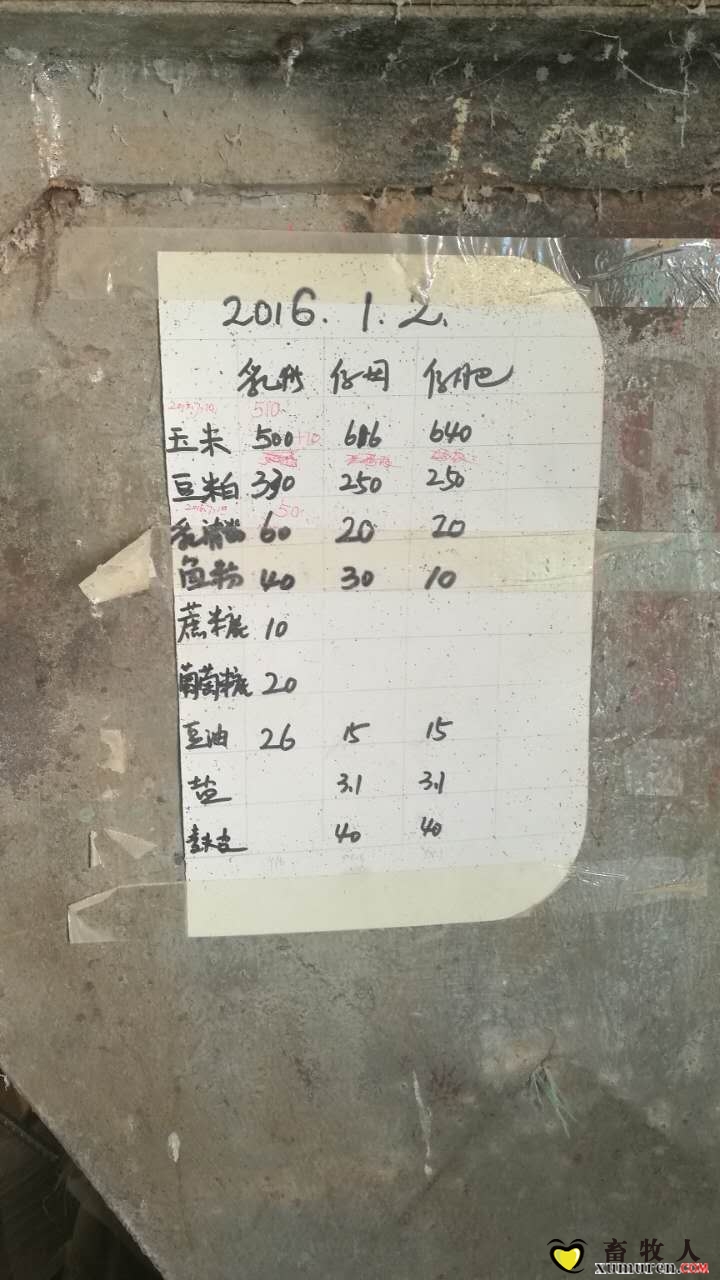 2016.1.2.
乳猪 仔母 仔肥
2016.7.10. 510.
玉米 500+10 616 640
豆粕 330 250 250
2016.7.10 50.
乳清 60 20 20
鱼粉 40 30 10
蔗糖 10
葡萄糖 20
豆油 26 15 15
盐 3.1 3.1
麦夫皮 40 40
畜牧人
xumuren.COM